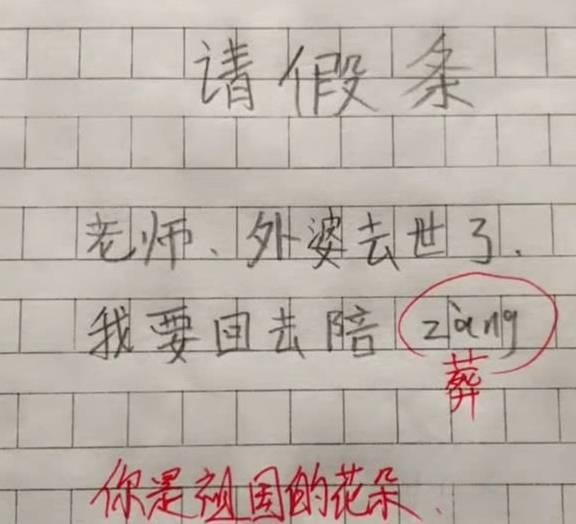 请假条
老师、外婆去世了.
我要回去陪 zàng
葬
你是祖国的花朵、